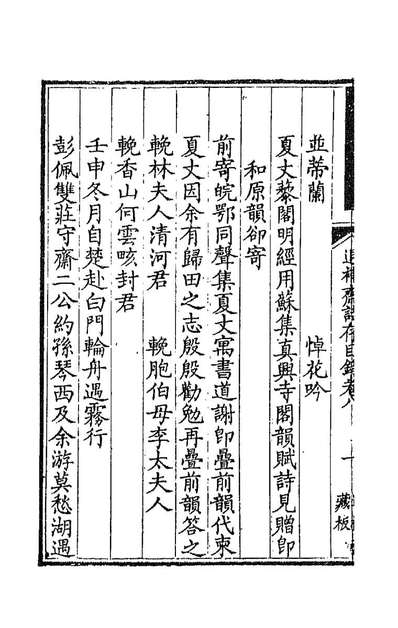 並蒂蘭　悼花吟
夏丈藜閣明經用蘇集真興寺閣韻賦詩見贈卽
和原韻卻寄
前寄皖鄂同聲集夏丈寓書道謝卽疊前韻代柬
夏丈因余有歸田之志殷殷勸勉再疊前韻答之
輓林夫人清河君　輓胞伯母李太夫人
輓香山何雲畡封君
壬申冬月自楚赴白門輪舟遇霧行
彭佩雙莊守齋二公約孫琴西及余游莫愁湖遇
補齋詩存目錄卷八
藏板